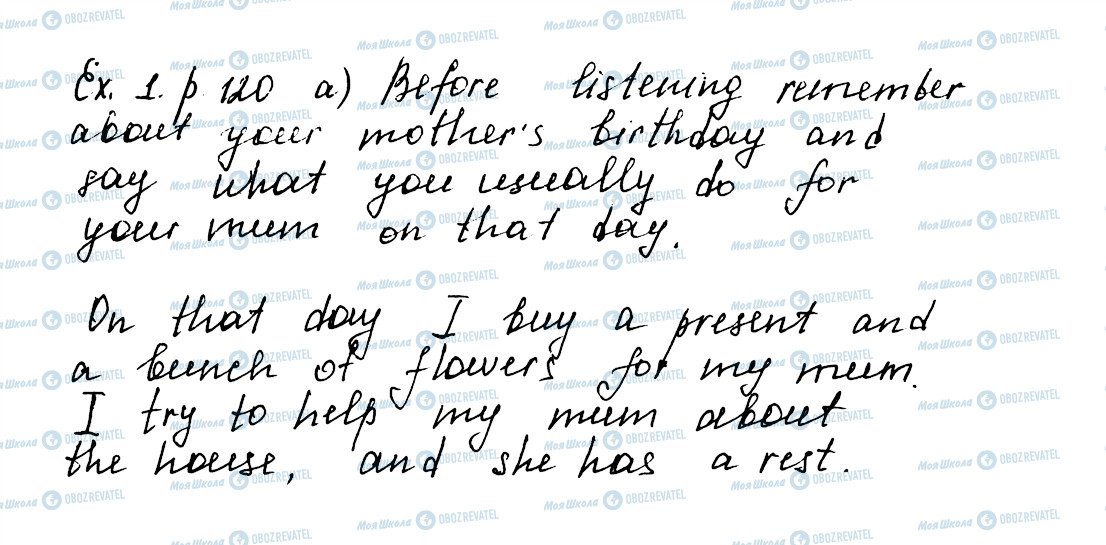 Ex. 1. p. 120 a) Before listening remember
about your mother's birthday and
say what you usually do for
your mum on that day.
On that day I buy a present and
a bunch of flowers for my mum.
I try to help my mum about
the house, and she has a rest.